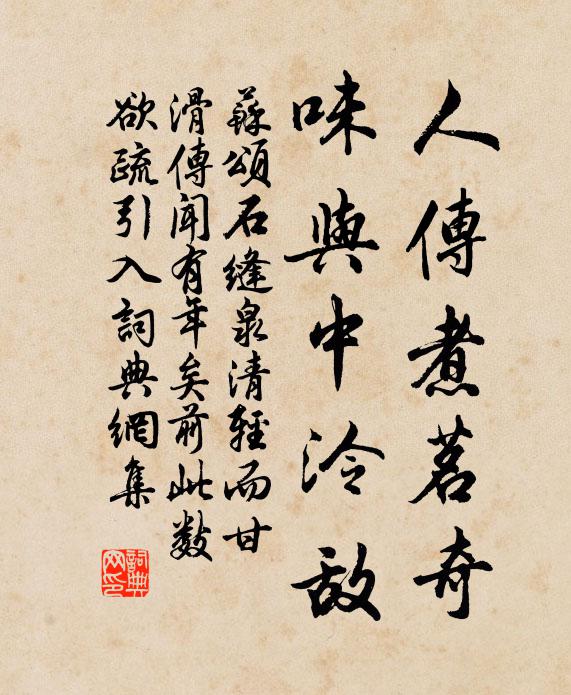 人傳煮茗奇
味與中泠敵
蘇頌石縫泉清輕而甘
滑傳聞有年矣前此數
欲疏引入詞典網集
詞典
网印